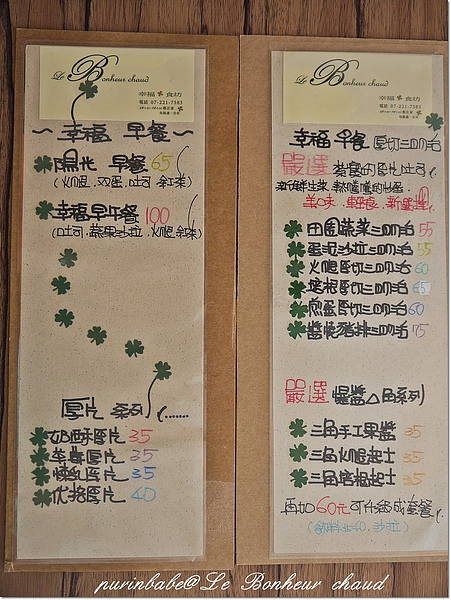 Le Bonheur chaud
幸福 食坊
電話 07-221-7383
~ 幸福 早餐 ~
陽光 早餐 65
(火腿.双蛋.吐司.紅茶)
幸福早午餐 100
(吐司.蔬果沙拉.火腿.紅茶)
厚片 系列
奶酥厚片 35
草莓厚片 35
煉乳厚片 35
优格厚片 40
Le Bonheur chaud
幸福 食坊
電話 07-221-7383
幸福 早餐 厚切三明治
嚴選
美味.輕食.新選擇
田園蔬菜三明治 55
蛋沙拉三明治 55
火腿厚切三明治 60
培根厚切三明治 65
煎蛋厚切三明治 60
醬燒豬排三明治 75
嚴選 爆醬△角系列
三角手工果醬 35
三角火腿起士 35
三角培根起士 35
再加60元可升級成套餐
(飲料40.沙拉)
purinbabe@Le Bonheur chaud